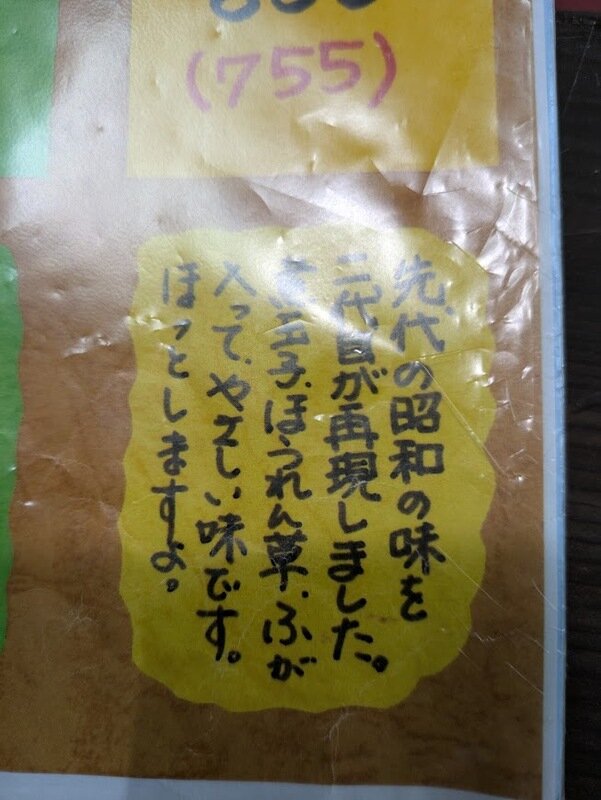 (755)
先代の昭和の味を
二代目が再現しました。
玉子、ほうれん草、ふが
入って、やさしい味です。
ほっとしますよ。